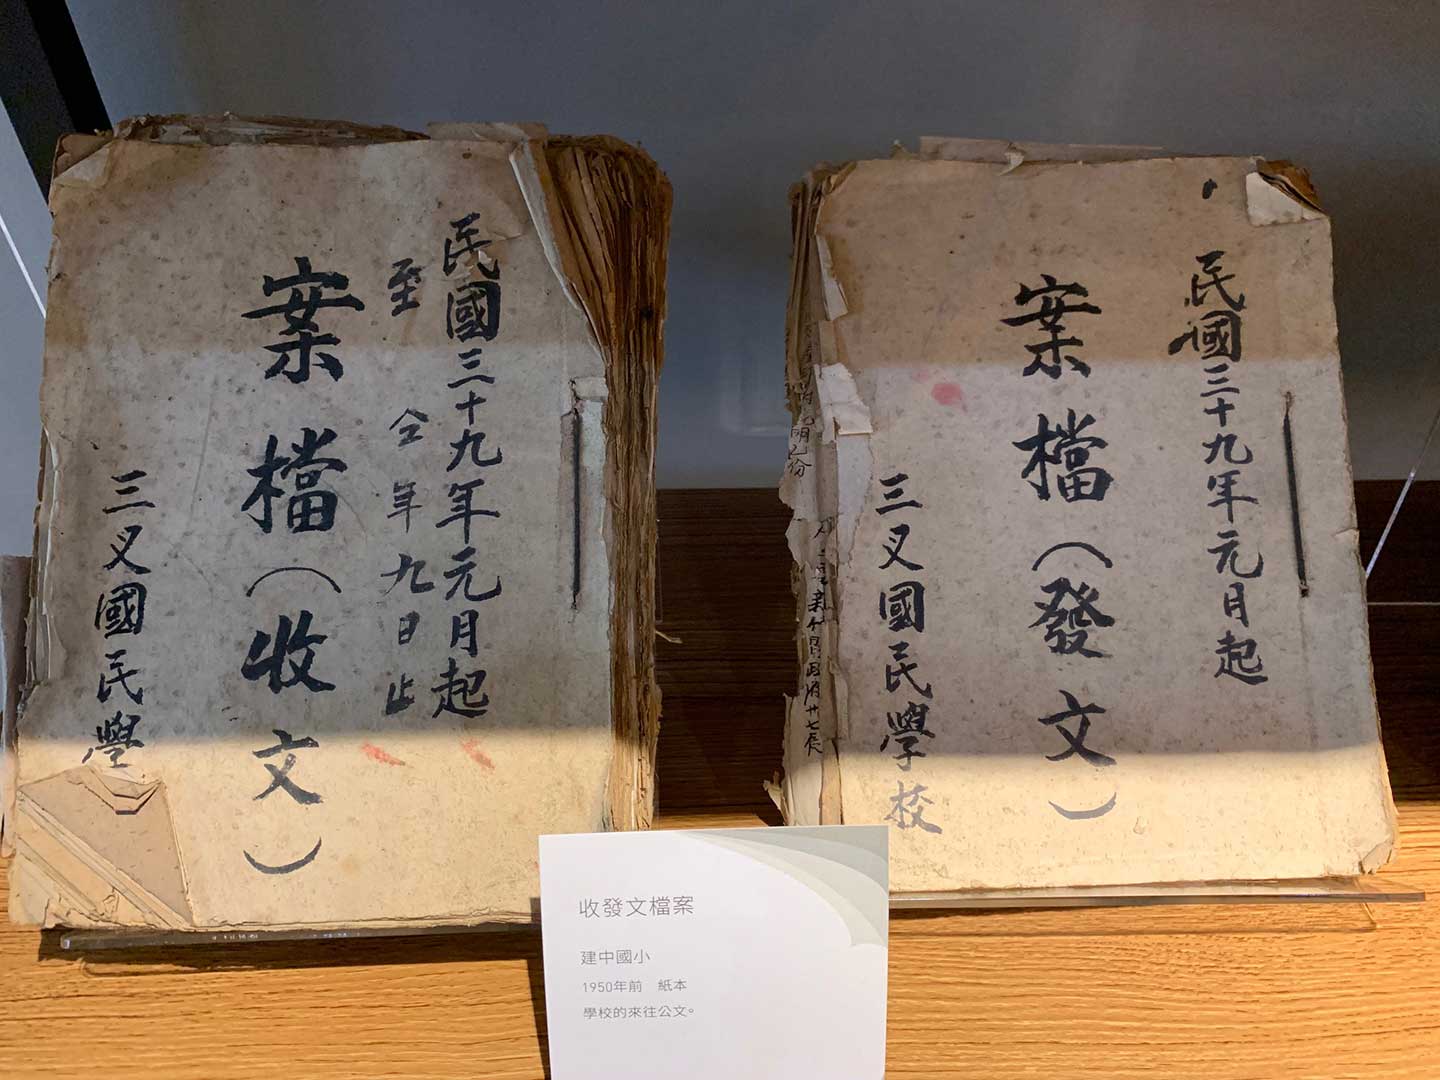 民國三十九年元月起
至仝年九日止
案檔（收文）
三叉國民學
民國三十九年元月起
案檔（發文）
三叉國民學校
收發文檔案
建中國小
1950年前　紙本
學校的來往公文。